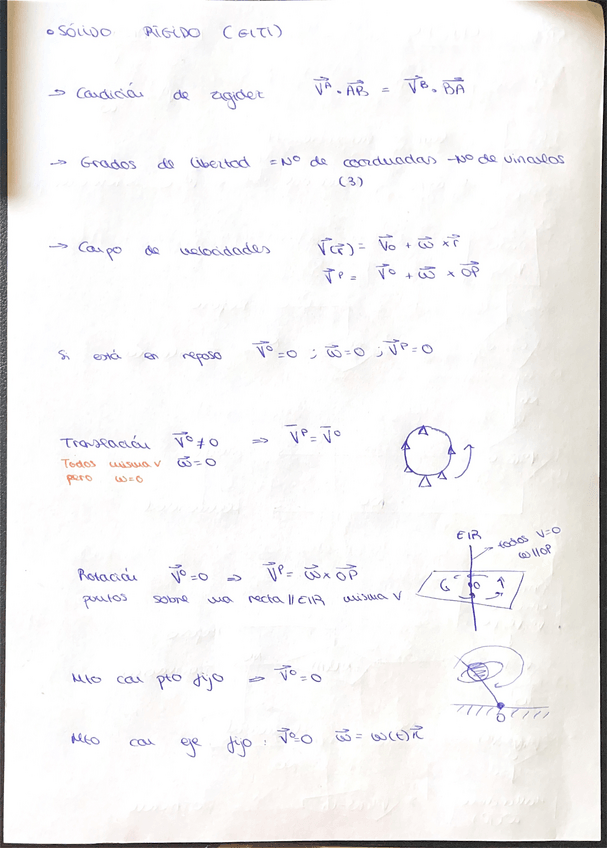 • SÓLIDO RÍGIDO (EITI)
→ Condición de rigidez V⃗ᴬ · AB⃗ = V⃗ᴮ · BA⃗
→ Grados de libertad = Nº de coordenadas - Nº de vínculos
(3)
→ Campo de velocidades V⃗(r⃗) = V⃗₀ + ω⃗ × r⃗
V⃗ᴾ = V⃗⁰ + ω⃗ × OP⃗
Si está en reposo V⃗⁰ = 0 ; ω⃗ = 0 ; V⃗ᴾ = 0
Translación V⃗⁰ ≠ 0 ⇒ V̄ᴾ = V̄⁰
Todos misma v ω⃗ = 0
pero ω=0
EIR
todos V=0
ω∥OP
Rotación V⃗⁰ = 0 ⇒ V⃗ᴾ = ω⃗ × OP⃗
G O
puntos sobre una recta ∥ EIR misma v
Mto con pto fijo ⇒ V⃗⁰ = 0
O
Mto con eje fijo : V⃗⁰ = 0 ω⃗ = ω(t) k⃗